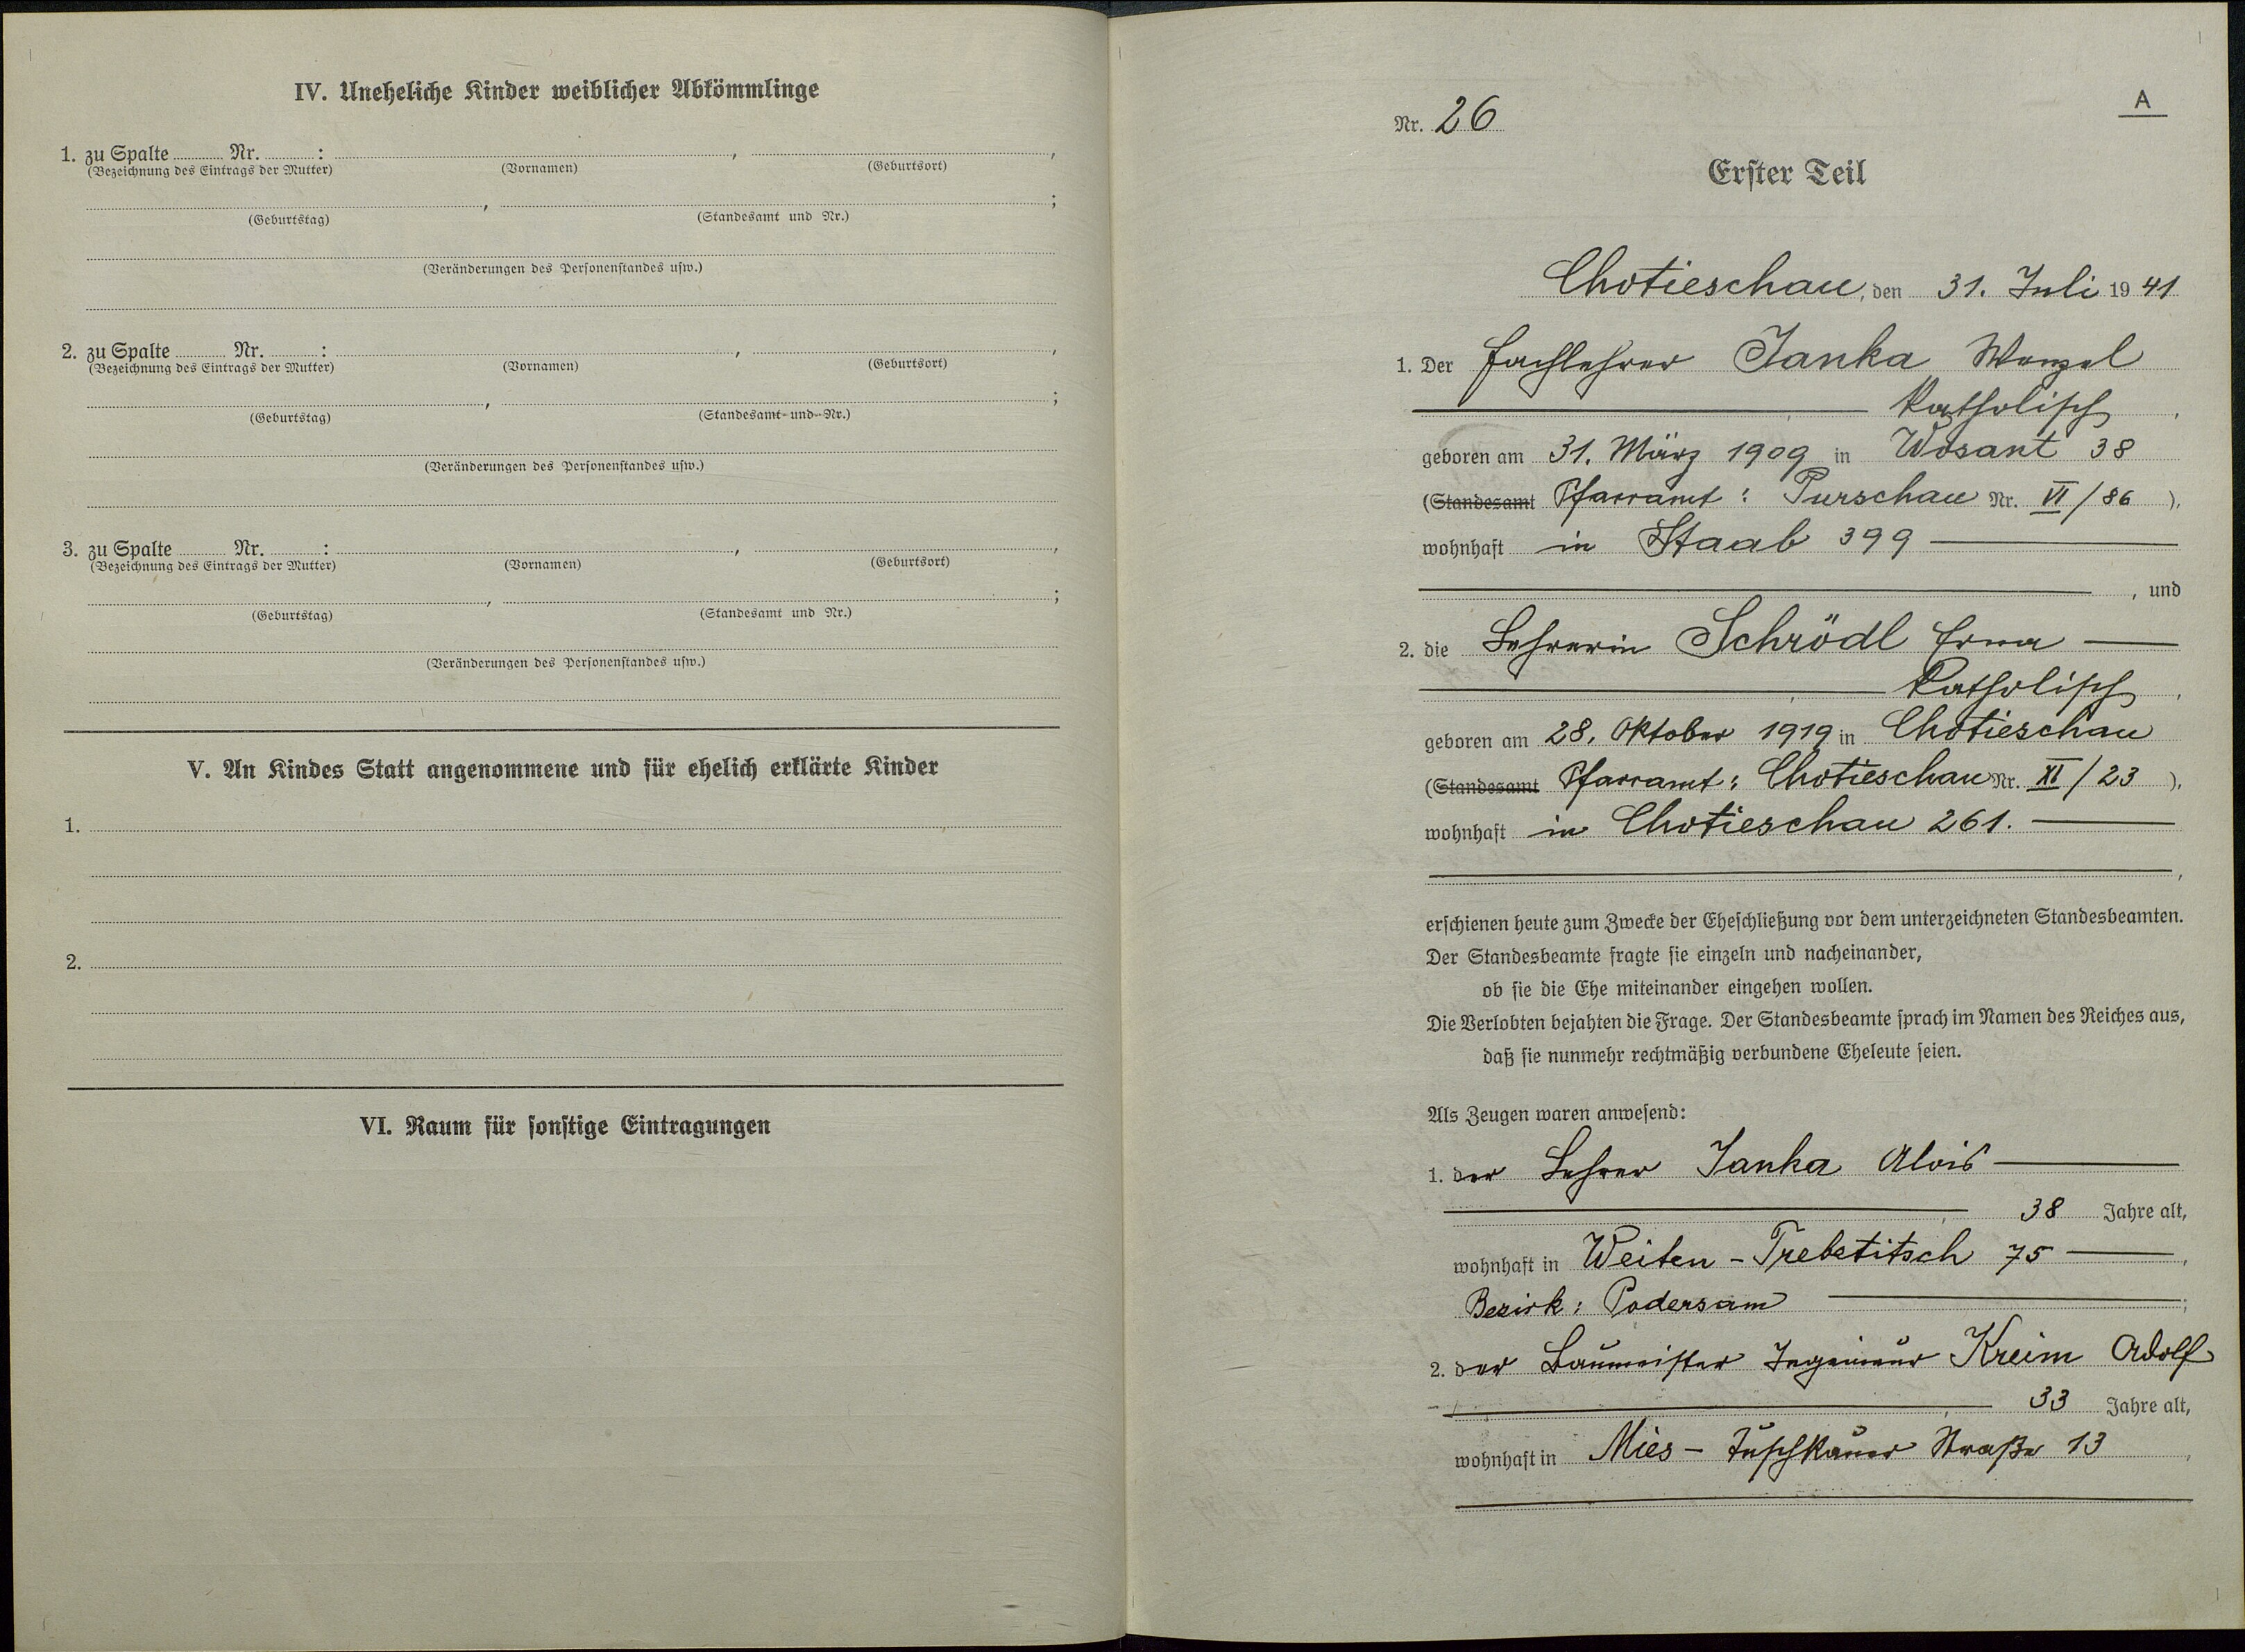 IV. Uneheliche Kinder weiblicher Abkömmlinge
1. zu Spalte Nr. : , ,
(Bezeichnung des Eintrags der Mutter) (Vornamen) (Geburtsort)
, ;
(Geburtstag) (Standesamt und Nr.)
(Veränderungen des Personenstandes usw.)
2. zu Spalte Nr. : , ,
(Bezeichnung des Eintrags der Mutter) (Vornamen) (Geburtsort)
, ;
(Geburtstag) (Standesamt und Nr.)
(Veränderungen des Personenstandes usw.)
3. zu Spalte Nr. : , ,
(Bezeichnung des Eintrags der Mutter) (Vornamen) (Geburtsort)
, ;
(Geburtstag) (Standesamt und Nr.)
(Veränderungen des Personenstandes usw.)
V. An Kindes Statt angenommene und für ehelich erklärte Kinder
1.
2.
VI. Raum für sonstige Eintragungen
A
Nr. 26
Erster Teil
Chotieschau, den 31. Juli 1941
1. Der Fachlehrer Janka Wenzel
Katholisch,
geboren am 31. März 1909 in Wosant 38
(Standesamt Pfarramt: Purschau Nr. VI/86),
wohnhaft in Staab 399
, und
2. die Lehrerin Schrödl Erna
Katholisch,
geboren am 28. Oktober 1919 in Chotieschau
(Standesamt Pfarramt: Chotieschau Nr. XI/23),
wohnhaft in Chotieschau 261.
,
erschienen heute zum Zwecke der Eheschließung vor dem unterzeichneten Standesbeamten.
Der Standesbeamte fragte sie einzeln und nacheinander,
ob sie die Ehe miteinander eingehen wollen.
Die Verlobten bejahten die Frage. Der Standesbeamte sprach im Namen des Reiches aus,
daß sie nunmehr rechtmäßig verbundene Eheleute seien.
Als Zeugen waren anwesend:
1. der Lehrer Janka Alois
, 38 Jahre alt,
wohnhaft in Weiten-Trebetitsch 75,
Bezirk: Podersam ;
2. der Baumeister Ingenieur Kreim Adolf
, 33 Jahre alt,
wohnhaft in Mies - Tuschkauer Straße 13,